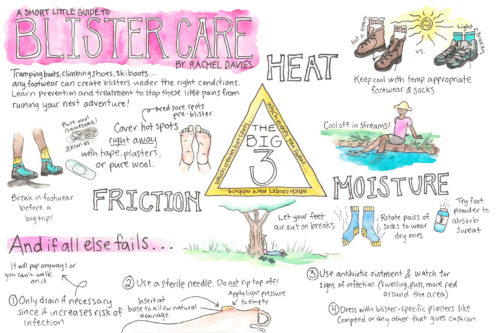 A SHORT LITTLE GUIDE TO
BLISTER CARE
BY RACHEL DAVIES
Tramping boots, climbing shoes, ski boots...
any footwear can create blisters under the right conditions.
Learn prevention and treatment to stop these little pains from
ruining your next adventure!
HEAT
Hot & heavy
vs.
Light & breezy
Keep cool with temp appropriate
footwear & socks
Pure wool
is awesome!
Break in footwear
before a
big trip!
red sore spots
pre-blister
Cover hot spots
right away
with tape, plasters,
or pure wool.
THE
BIG
3
which creates heat from...
which creates more rubbing
FRICTION
MOISTURE
Cool off in streams!
Let your feet
air out on breaks
Rotate pairs of
socks to wear
dry ones
Try foot
powder to
absorb
sweat
And if all else fails...
It will pop anyways or
you can't walk
on it
① Only drain if necessary
since it increases risk of
infection
② Use a sterile needle. Do not rip top off!
Insert at
base to allow natural
drainage
Apply light pressure
to empty
③ Use antibiotic ointment & Watch for
signs of infection (swelling, pus, more red
around the area)
④ Dress with blister-specific plasters like
Compeed or any other that gives cushion